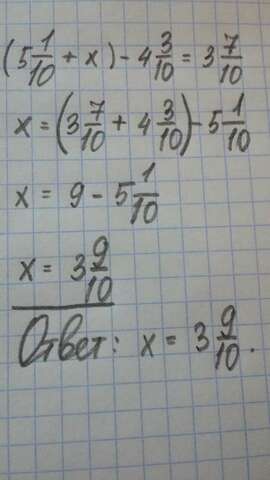 (5 1/10 + x) - 4 3/10 = 3 7/10
x = (3 7/10 + 4 3/10) - 5 1/10
x = 9 - 5 1/10
x = 3 9/10
Ответ: x = 3 9/10.